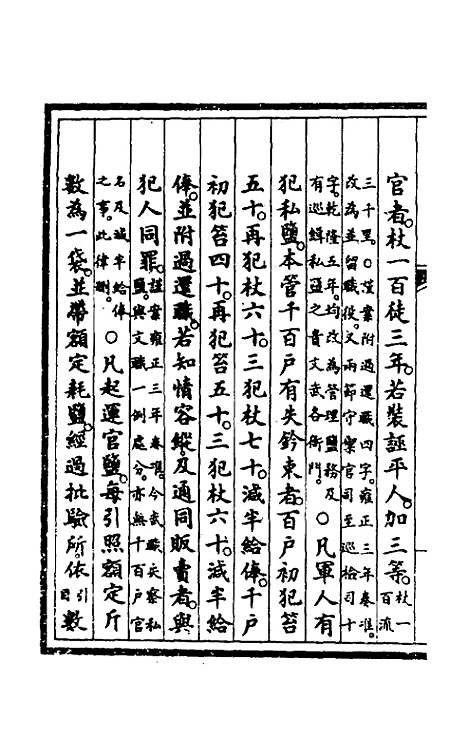 官者。杖一百徒三年。若裝誣平人。加三等。杖一百流
三千里。○謹案附過還職四字。雍正三年奏准。改為並留職役。又兩節守禦官司至巡檢司十
字。乾隆五年。均改為管理鹽務及有巡緝私鹽之責文武各衙門。○凡軍人有
犯私鹽。本管千百戶有失鈐束者。百戶初犯笞
五十。再犯杖六十。三犯杖七十。減半給俸。千戶
初犯笞四十。再犯笞五十。三犯杖六十。減半給
俸。並附過還職。若知情容縱。及通同販賣者。與
犯人同罪。謹案雍正三年奏准。今武職失察私鹽。與文職一例處分。亦無千百戶官
名及減半給俸之事。此律刪。○凡起運官鹽。每引照額定斤
數為一袋。並帶額定耗鹽。經過批驗所依引目數